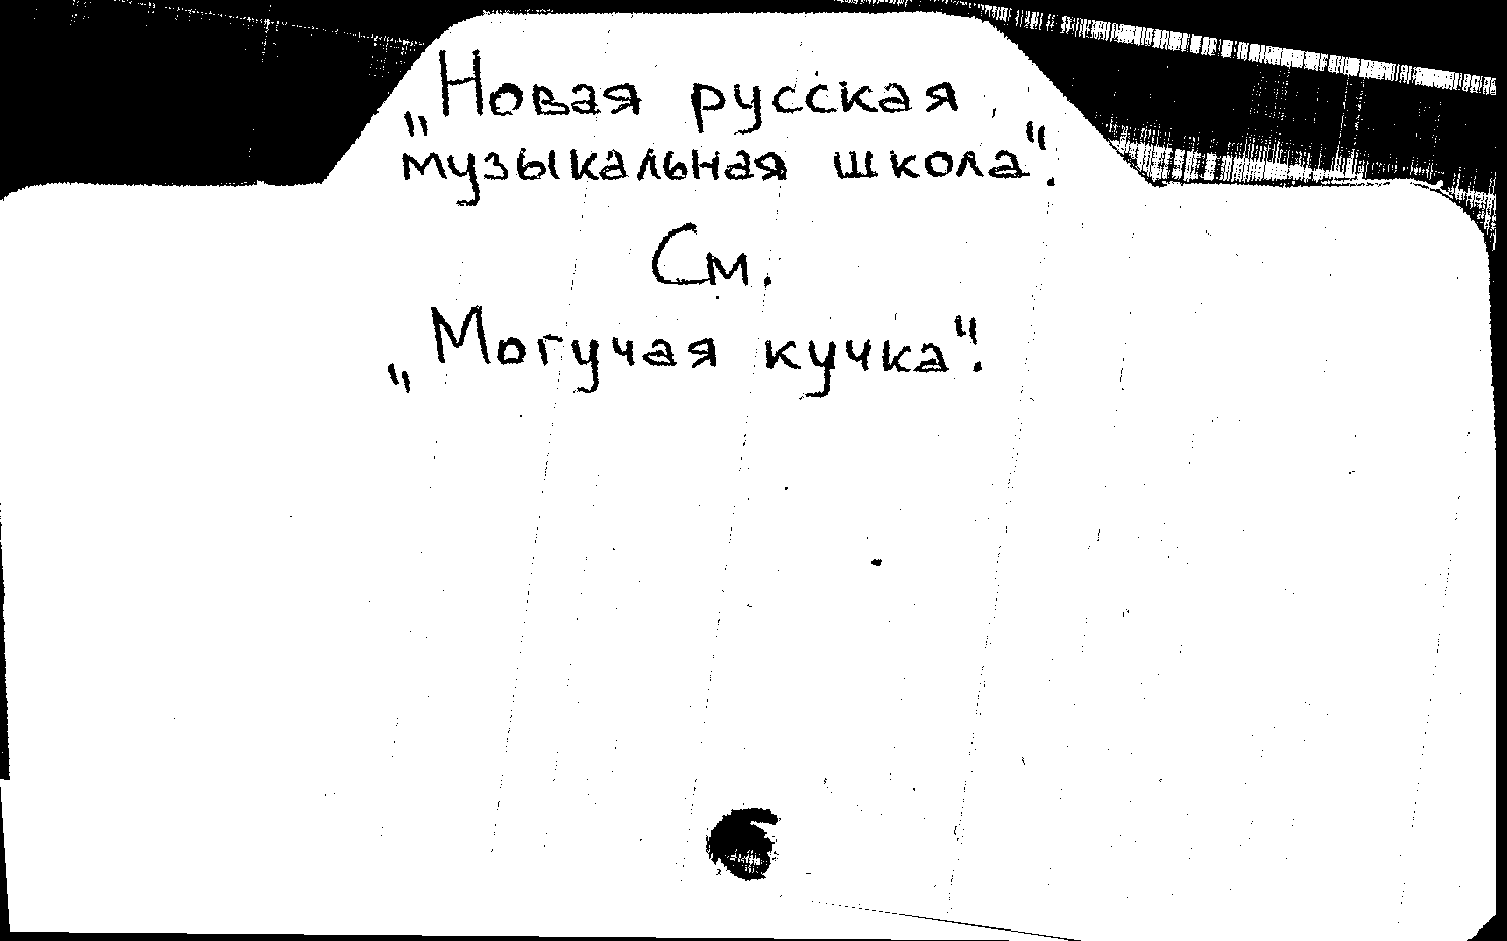 „Новая русская
музыкальная школа".
См.
„Могучая кучка".